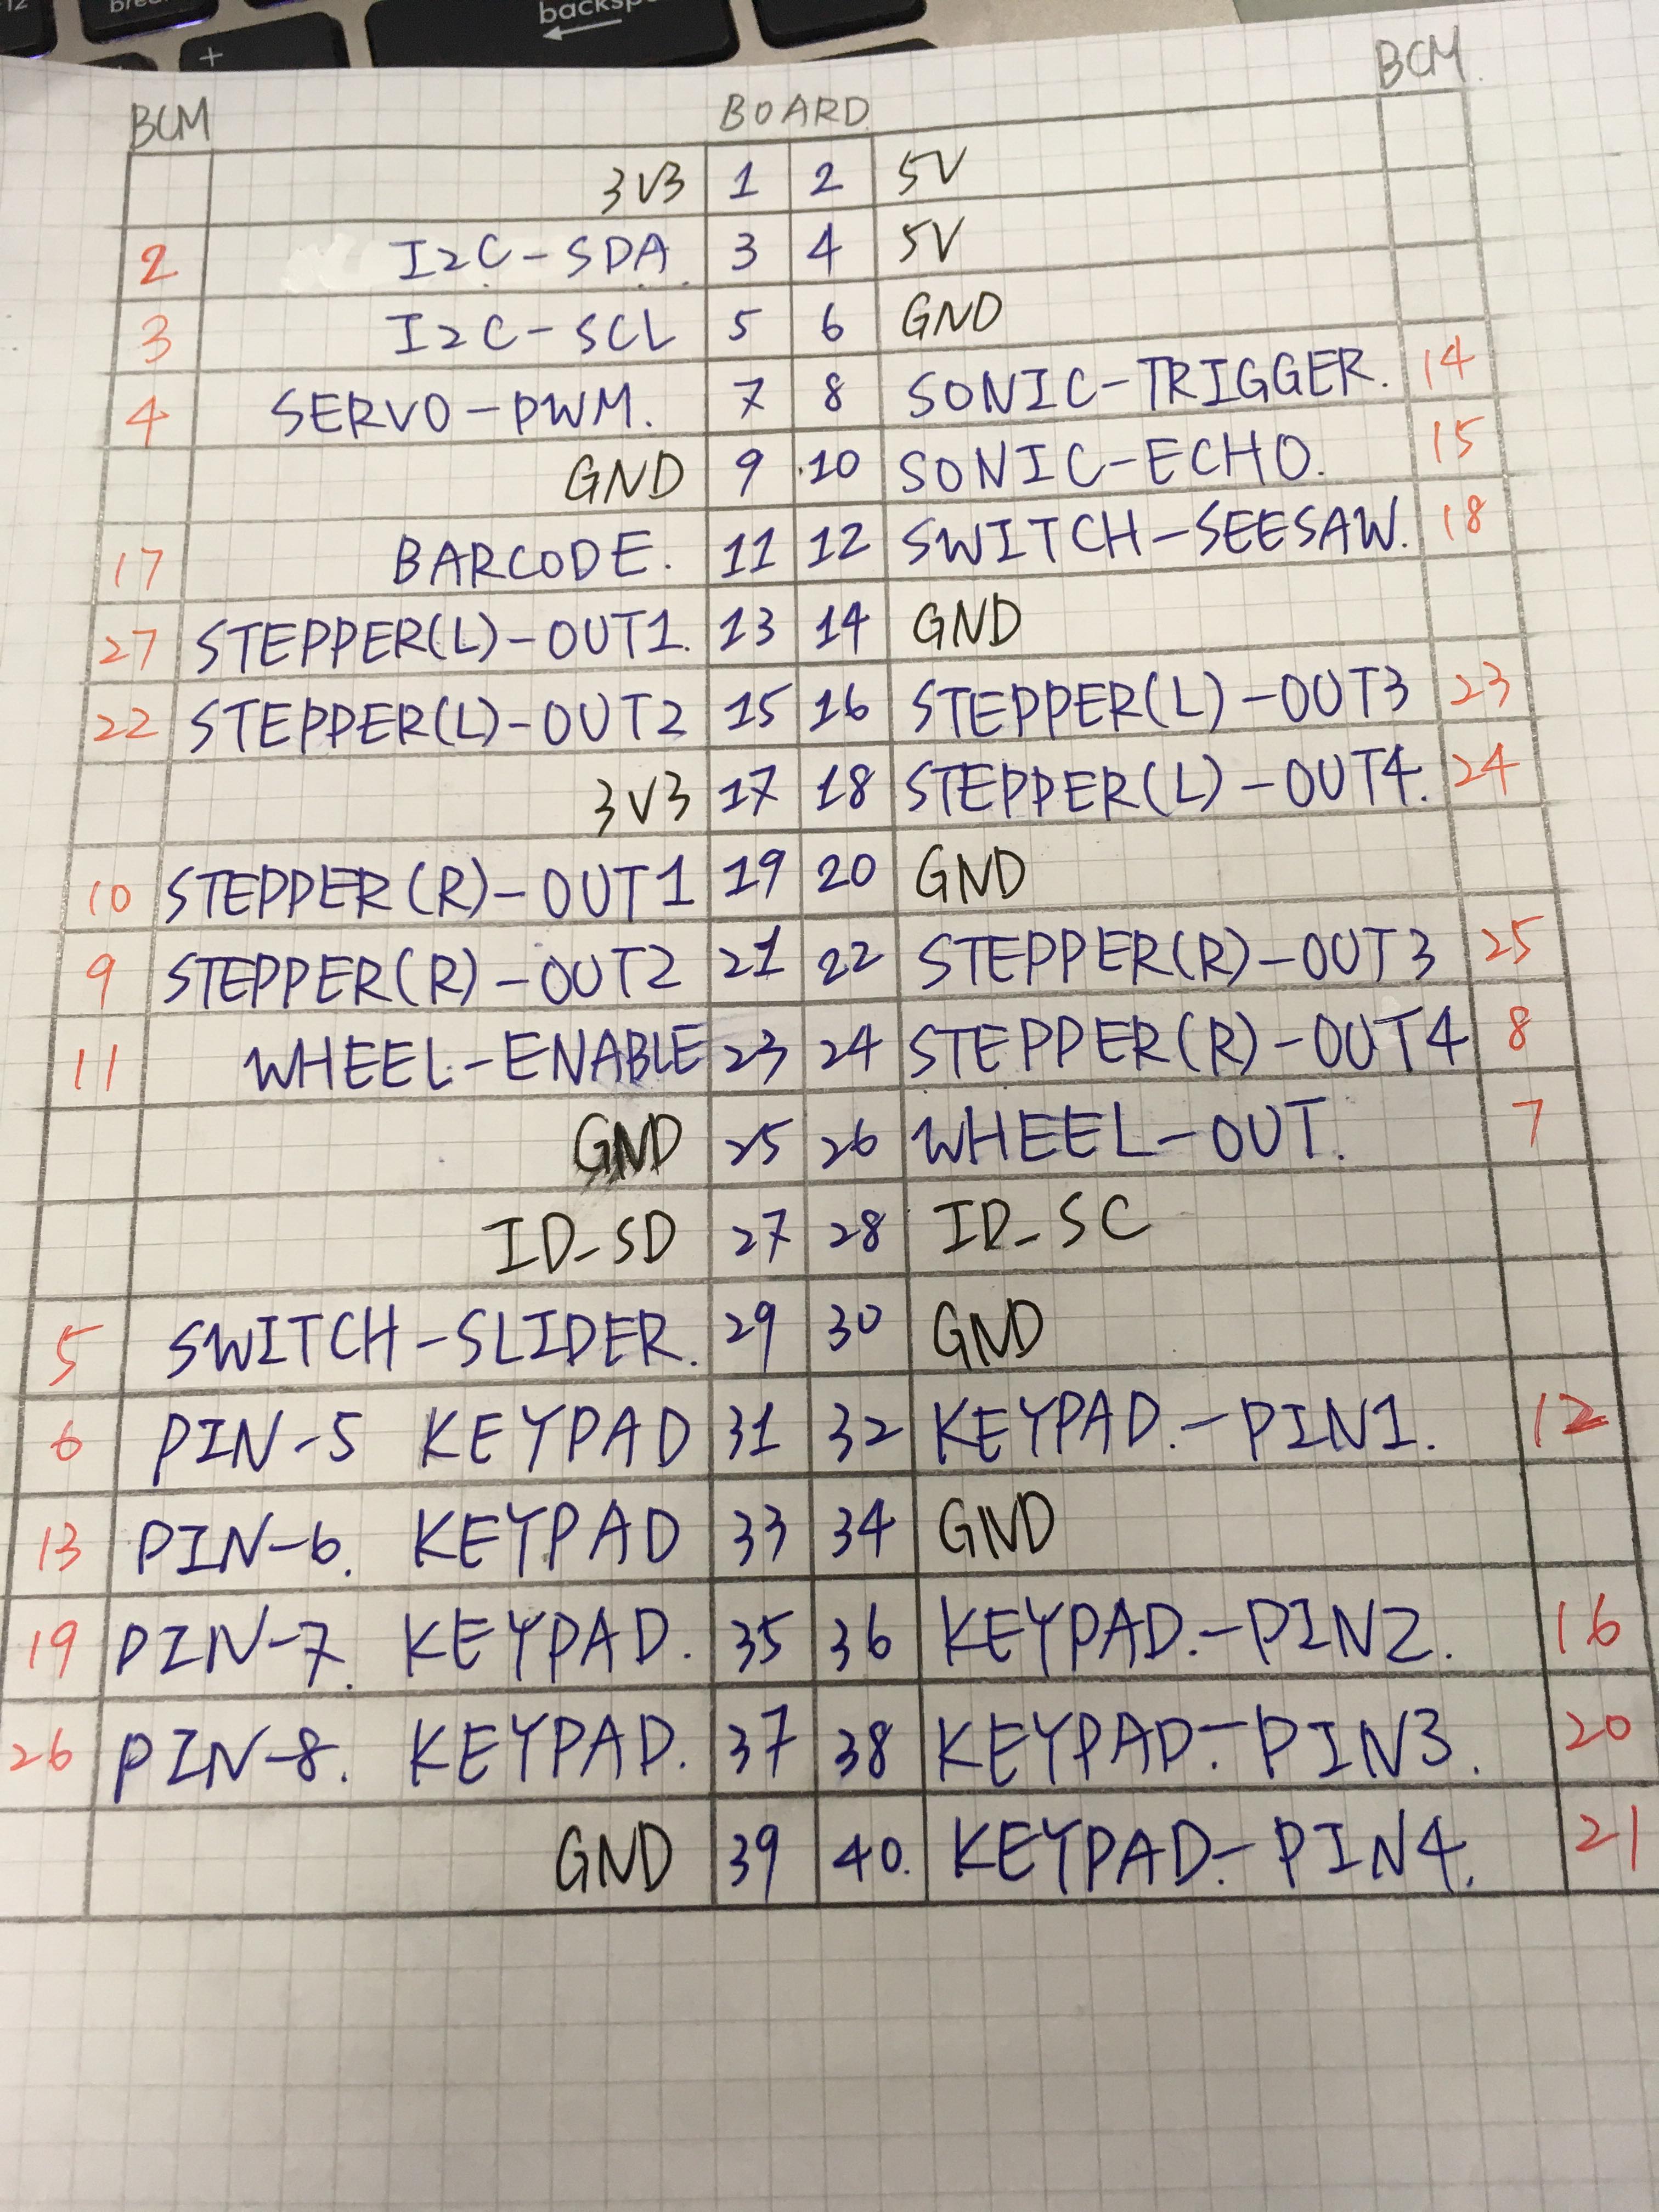 brea
backsp
+
BCM BOARD BCM
3V3 1 2 5V
2 I2C-SDA 3 4 5V
3 I2C-SCL 5 6 GND
4 SERVO-PWM. 7 8 SONIC-TRIGGER. 14
GND 9 10 SONIC-ECHO. 15
17 BARCODE. 11 12 SWITCH-SEESAW. 18
27 STEPPER(L)-OUT1. 13 14 GND
22 STEPPER(L)-OUT2 15 16 STEPPER(L)-OUT3 23
3V3 17 18 STEPPER(L)-OUT4. 24
10 STEPPER(R)-OUT1 19 20 GND
9 STEPPER(R)-OUT2 21 22 STEPPER(R)-OUT3 25
11 WHEEL-ENABLE 23 24 STEPPER(R)-OUT4 8
GND 25 26 WHEEL-OUT. 7
ID_SD 27 28 ID_SC
5 SWITCH-SLIDER. 29 30 GND
6 PIN-5 KEYPAD 31 32 KEYPAD.-PIN1. 12
13 PIN-6. KEYPAD 33 34 GND
19 PIN-7. KEYPAD. 35 36 KEYPAD.-PIN2. 16
26 PIN-8. KEYPAD. 37 38 KEYPAD.-PIN3. 20
GND 39 40. KEYPAD.-PIN4. 21